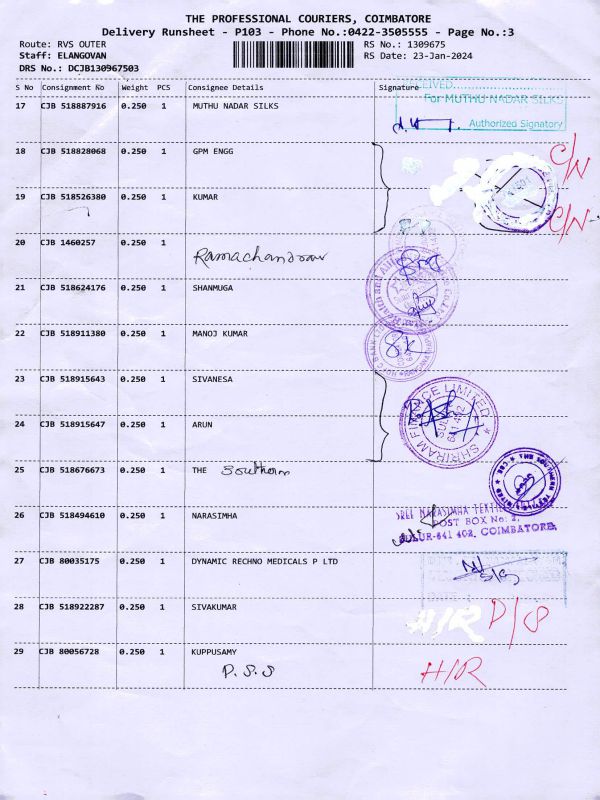 THE PROFESSIONAL COURIERS, COIMBATORE
Delivery Runsheet - P103 - Phone No.:0422-3505555 - Page No.:3
Route: RVS OUTER RS No.: 1309675
Staff: ELANGOVAN RS Date: 23-Jan-2024
DRS No.: DCJB130967503
S No Consignment No Weight PCS Consignee Details Signature
17 CJB 518887916 0.250 1 MUTHU NADAR SILKS
For MUTHU NADAR SILKS
Authorized Signatory
18 CJB 518828068 0.250 1 GPM ENGG C/N
19 CJB 518526380 0.250 1 KUMAR C/N
20 CJB 1460257 0.250 1
Ramachandran
21 CJB 518624176 0.250 1 SHANMUGA
22 CJB 518911380 0.250 1 MANOJ KUMAR
23 CJB 518915643 0.250 1 SIVANESA
SHRIRAM FINANCE LIMITED
SULUR
641 402
24 CJB 518915647 0.250 1 ARUN
25 CJB 518676673 0.250 1 THE Southern
26 CJB 518494610 0.250 1 NARASIMHA
SREE NARASIMHA
POST BOX No:
SULUR-641 402, COIMBATORE.
27 CJB 80035175 0.250 1 DYNAMIC RECHNO MEDICALS P LTD
28 CJB 518922287 0.250 1 SIVAKUMAR H/R D/8
29 CJB 80056728 0.250 1 KUPPUSAMY H/R
P.S.S